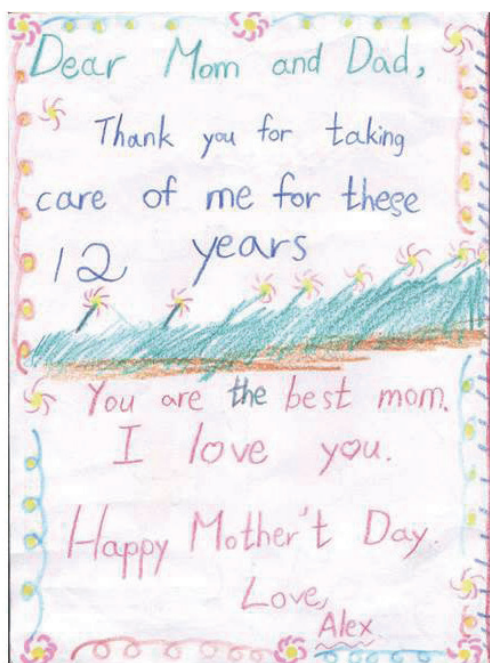 Dear Mom and Dad,
Thank you for taking
care of me for these
12 years
You are the best mom.
I love you.
Happy Mother't Day.
Love,
Alex.